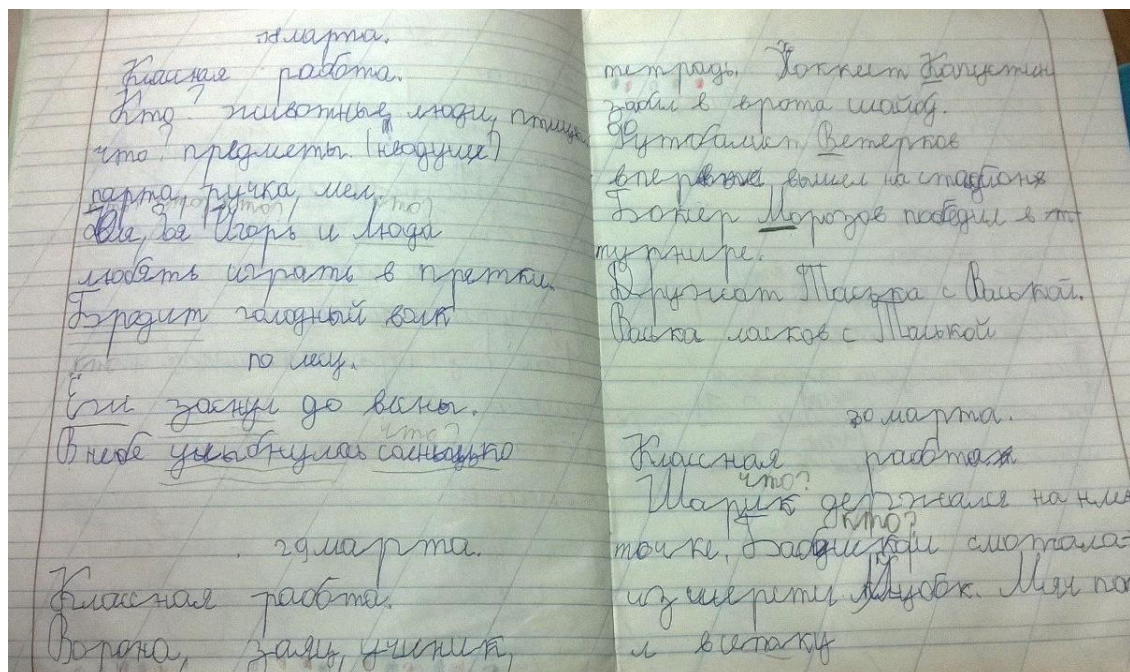 марта.
Классная работа.
Кто? животные, люди, птицы
что? предметы. (неодуше)
парта, ручка, мел.
Оля, Зоя Игорь и Люда
любять играть в прятки.
Бродит голодный волк
по лесу.
Ёги заснул до весны.
что?
В небе улыбнулась солнышко
29 марта.
Классная рабта.
Ворона, заяц, ученик,
тетрадь. Хоккеит Капустин
забил в врота шайбу.
Футобалист Ветерков
впервые вышел на стадион
Боксер Морозов победил в т
турнире.
Дружат с Васькой.
Васька ласков с
30 марта.
Классная работа
что?
Шарик держался на ни
кто?
точке. смотала
из шерсти клубок. Мяч по
л